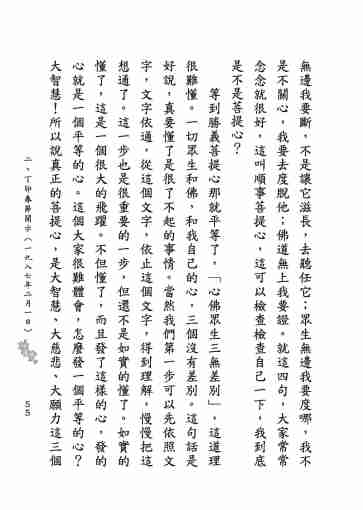 無邊我要斷，不是讓它滋長，去聽任它；眾生無邊我要度哪，我不
是不關心，我要去度脫他；佛道無上我要證。就這四句，大家常常
念念就很好，這叫順事菩提心，這可以檢查檢查自己一下，我到底
是不是菩提心？
等到勝義菩提心那就平等了。「心佛眾生三無差別」，這道理
很難懂。一切眾生和佛，和我自己的心，三個沒有差別。這句話是
好說，真要懂了是很了不起的事情。當然我們第一步可以先依照文
字，文字依通，從這個文字，依止這個文字，得到理解，慢慢把這
想通了。這一步也是很重要的一步，但還不是如實的懂了。如實的
懂了，這是一個很大的飛躍。不但懂了，而且發了這樣的心，發的
心就是一個平等的心。這個大家很難體會，怎麼發一個平等的心？
大智慧！所以說真正的菩提心，是大智慧、大慈悲、大願力這三個
二、丁卯春節開示（一九八七年二月一日）
55